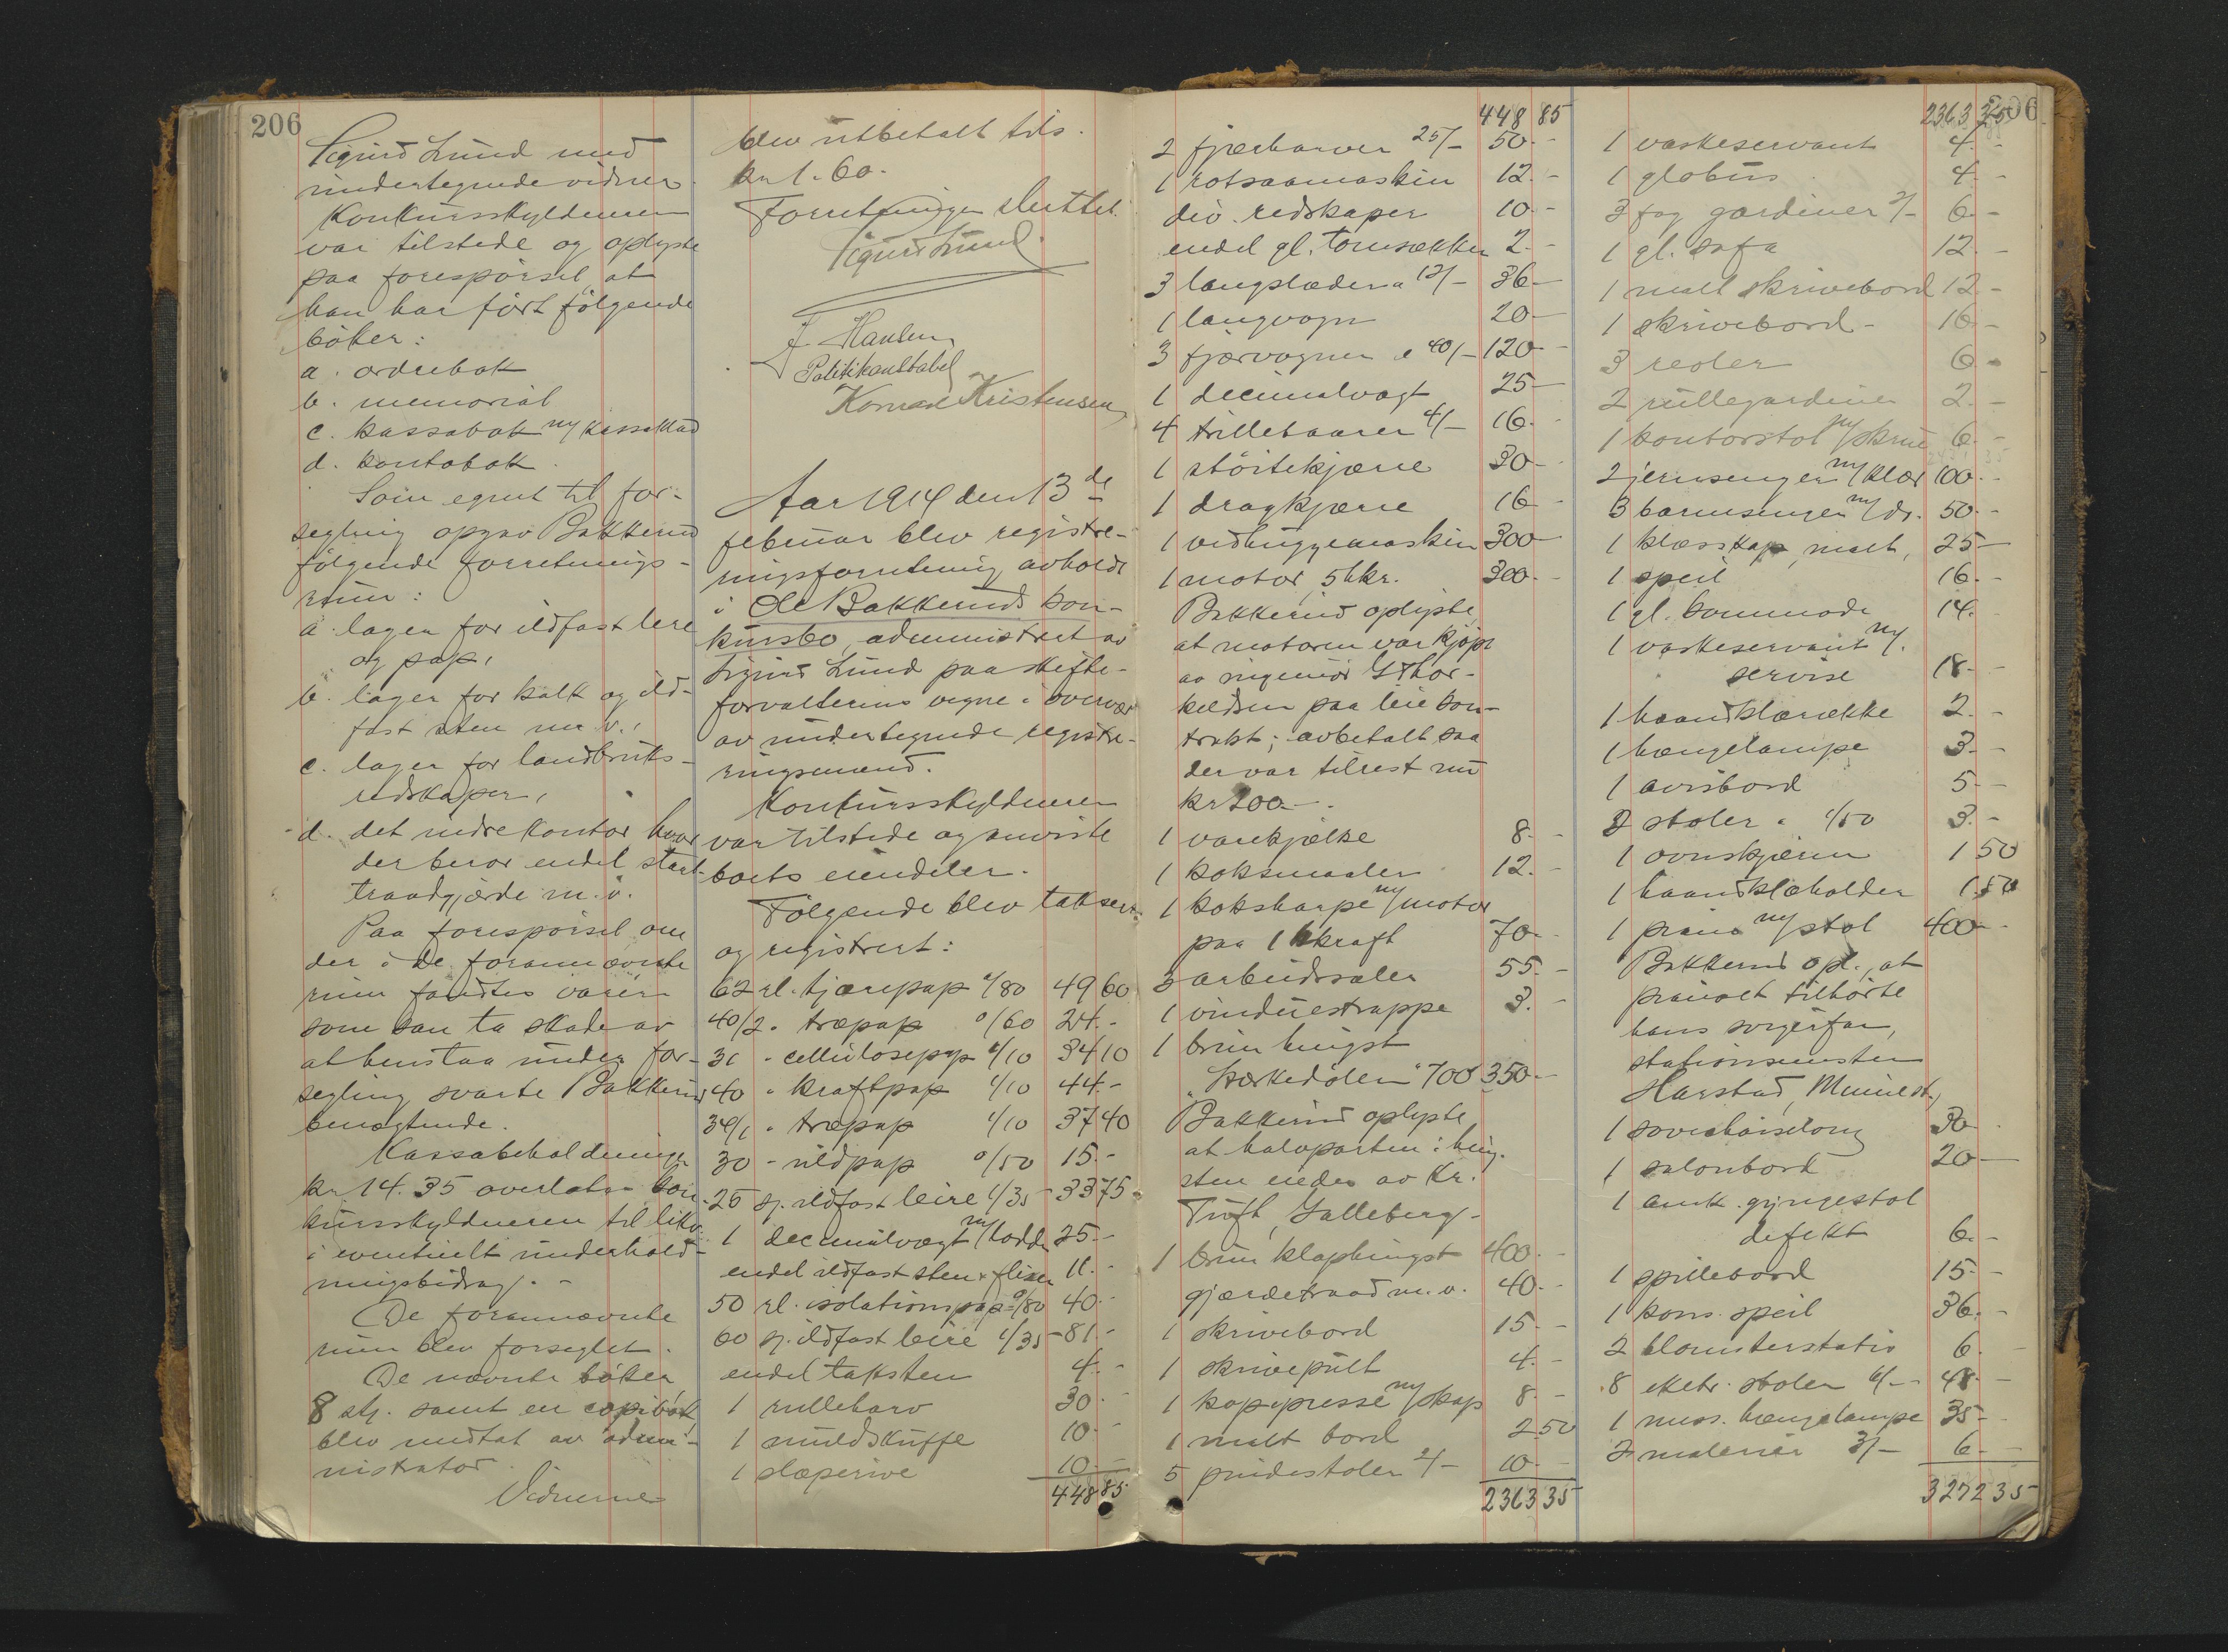 206
Sigurd Lund med
undertegnede vidner.
Konkursskyldneren
var tilstede og oplyste
paa forespørsel, at
han har ført følgende
bøker:
a. ordrebok
b. memorial
c. kassabok m/ kassaklad
d. kontobok.
Som egnet til for-
segling opgav Bakkerud
følgende forretnings-
rum:
a. lager for ildfast lere
og pap,
b. lager for kalk og ild-
fast sten m.v.,
c. lager for landbruks-
redskaper,
d. det nedre kontor hvor
der beror endel staal-
traadgjærde m.v.
Paa forespørsel om
der i de forannævnte
rum fandtes varer
som kan ta skade av
at henstaa under for-
segling svarte Bakkerud
benegtende.
Kassabeholdningen
kr. 14.35 overlates kon-
kursskyldneren til likv.
i eventuelt underhold-
ningsbidrag. -
De forannævnte
rum blev forseglet.
De nævnte bøker
8 stk. samt en copibok
blev medtat av admi-
nistrator.
Vidnerne
blev utbetalt tils.
kr. 1.60.
Forretningen sluttet.
Sigurd Lund.
J. Hansen
Politikonstabel
Konrad Kristensen
Aar 1914 den 13de
februar blev registre-
ringsforretning avholdt
i Ole Bakkeruds kon-
kursbo, administrert av
Sigurd Lund paa skifte-
forvalterens vegne i overvær
av undertegnede registre-
ringsmænd.
Konkursskyldneren
var tilstede og anviste
boets eiendeler.
Følgende blev taksert
og registrert:
62 rl. tjærepap "/80 49 60
40/2 " træpap "/60 24.-
31 " cellulosepap 1/10 34 10
40 " kraftpap 1/10 44.-
34/1 " træpap 1/10 37 40
30 - uldpap "/50 15.-
25 sj. ildfast leire 1/35 - 33 75
1 decimalvegt m/ lodde 25.-
endel ildfast sten & fliser 11.-
50 rl. isolationspap "/80 40.-
60 sj. ildfast leire 1/35 - 81.-
endel taksten 4.-
1 rulleharv 30.-
1 muldskuffe 10.-
1 slæperive 10.-
448 85
448 85
2 fjærharver 25/- 50.-
1 rotsaamaskin 12.-
div. redskaper 10.-
endel gl. tomsækker 2.-
3 langslæder a 12/- 36.-
1 langvogn 20.-
3 fjærvogner a 40/- 120.-
1 decimalvegt 25.-
4 trillebaarer 4/- 16.-
1 støitekjærre 30.-
1 dragkjærre 16.-
1 vedhuggemaskin 300
1 motor, 5 hkr. 300.-
Bakkerud oplyste,
at motoren var kjøpt
av ingeniør G Thor-
kildsen paa leiekon-
trakt; avbetalt saa
der var tilrest nu
kr 200.-.
1 varekjælke 8.-
1 koksmaaler 12.-
1 koksharpe m/ motor
paa 1 hkraft 70.-
3 arbeidssæler 55.-
1 vinduestrappe 3.-
1 brun hingst
"Størkedølen" 700 350.-
Bakkerud oplyste
at halvparten i hing-
sten eiedes av Kr.
Tuft, Galleberg.
1 brun klaphingst 400.-
gjærdetraad m.v. 40.-
1 skrivebord 15.-
1 skrivepult 4.-
1 kopipresse m/ skap 8.-
1 malt bord 2 50
5 pindestoler 2/- 10.-
2363 35
206
2363 35
1 vaskeservant 4.-
1 globus 4.-
3 fag gardiner 2/- 6.-
1 gl. sofa 12.-
1 malt skrivebord 12.-
1 skrivebord - 16.-
3 reoler 6.-
2 rullegardiner 2.-
1 kontorstol m/ skrue 6.-
2 jernsenger m/ klær 100.-
3 barnesenger m/ do. 50.-
1 klæsskap, malt, 25.-
1 speil 16.-
1 gl. kommode 14.
1 vaskeservant m/.
servise 18.-
1 haandklærække 2.-
1 hængelampe 3.-
1 avisbord 5.-
2 stoler a 1/50 3.-
1 ovnskjærm 1 50
1 haandklæholder 1.50
1 piano m/ stol 400.-
Bakkerud opl., at
pianoet tilhørte
hans svigerfar,
stationsmester
Harstad,
1 sovechaiselong 30
1 salonbord 20.-
1 amk. gyngestol
defekt 6.-
1 spillebord 15.-
1 kons. speil 36.-
2 blomsterstativ 6.-
8 eketr. stoler 6/- 48.-
1 mess. hængelampe 35.-
2 malerier 3/- 6.-
3272 35